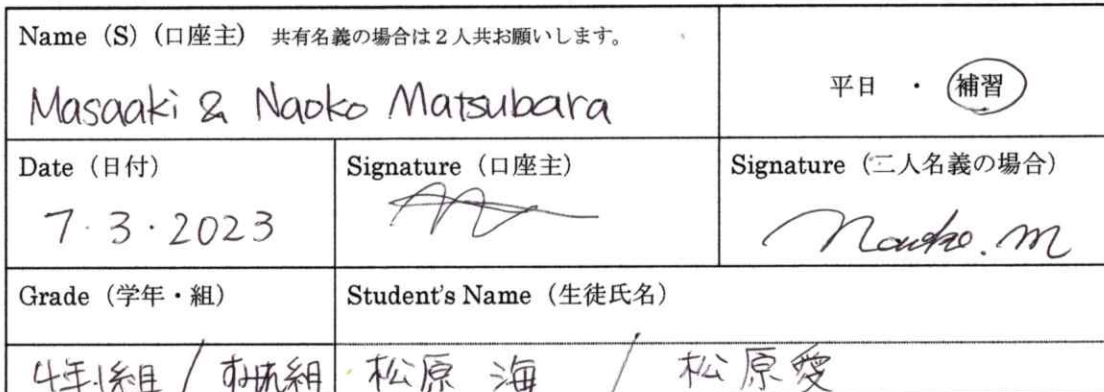 Name (S) (口座主) 共有名義の場合は2人共お願いします。
Masaaki & Naoko Matsubara
平日 ・ 補習
Date (日付)
7.3.2023
Signature (口座主)
Signature (二人名義の場合)
Naoko.m
Grade (学年・組)
Student's Name (生徒氏名)
4年1組 / 組 松原 海 / 松原愛